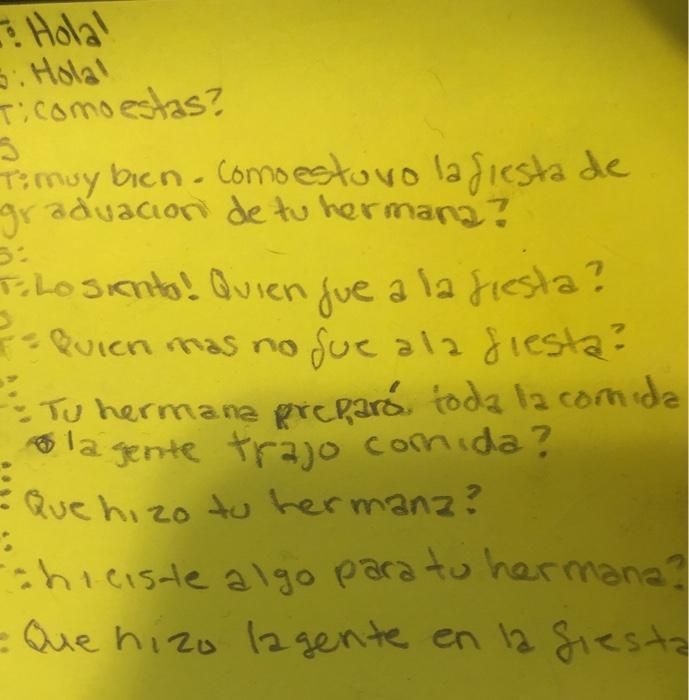 T: Hola!
S: Hola!
T: como estas?
S
T: muy bien. Como estuvo la fiesta de
graduacion de tu hermana?
S:
T: Lo siento! Quien fue a la fiesta?
S
T: Quien mas no fue a la fiesta?
:
: Tu hermana preparó toda la comida
o la gente trajo comida?
:
: Que hizo tu hermana?
:
: hiciste algo para tu hermana?
: Que hizo la gente en la fiesta